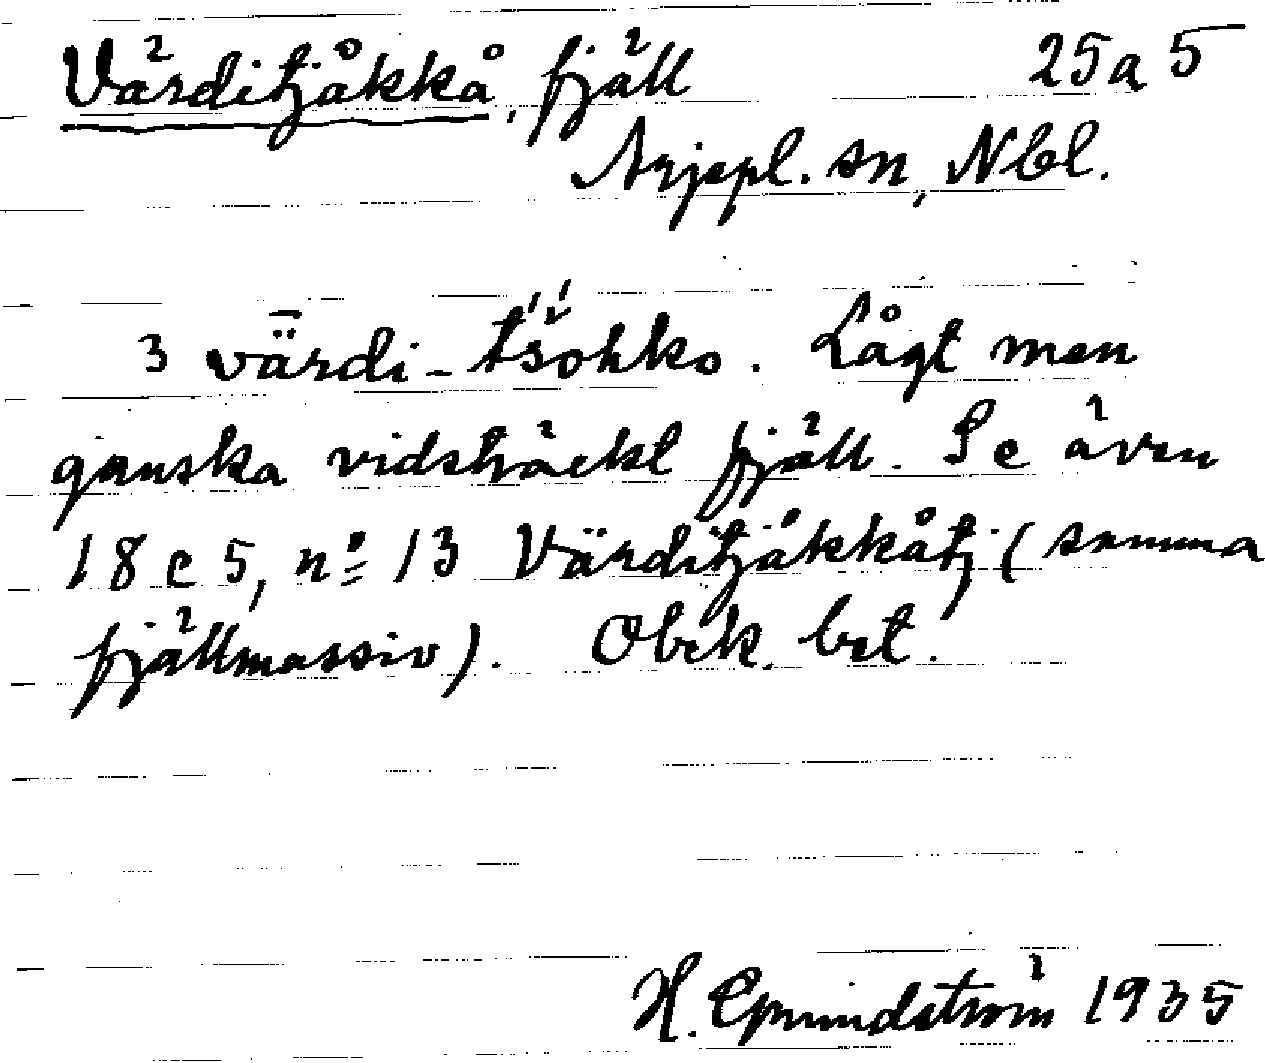 Värditjåkkå, fjäll 25a5
Arjepl. sn, Nbl.
3 värdi-tšohko. Lågt men
ganska vidsträckt fjäll. Se även
18c5, nº 13 Värditjåkkåtj (samma
fjällmassiv). Obek. bet.
H. Grundström 1935